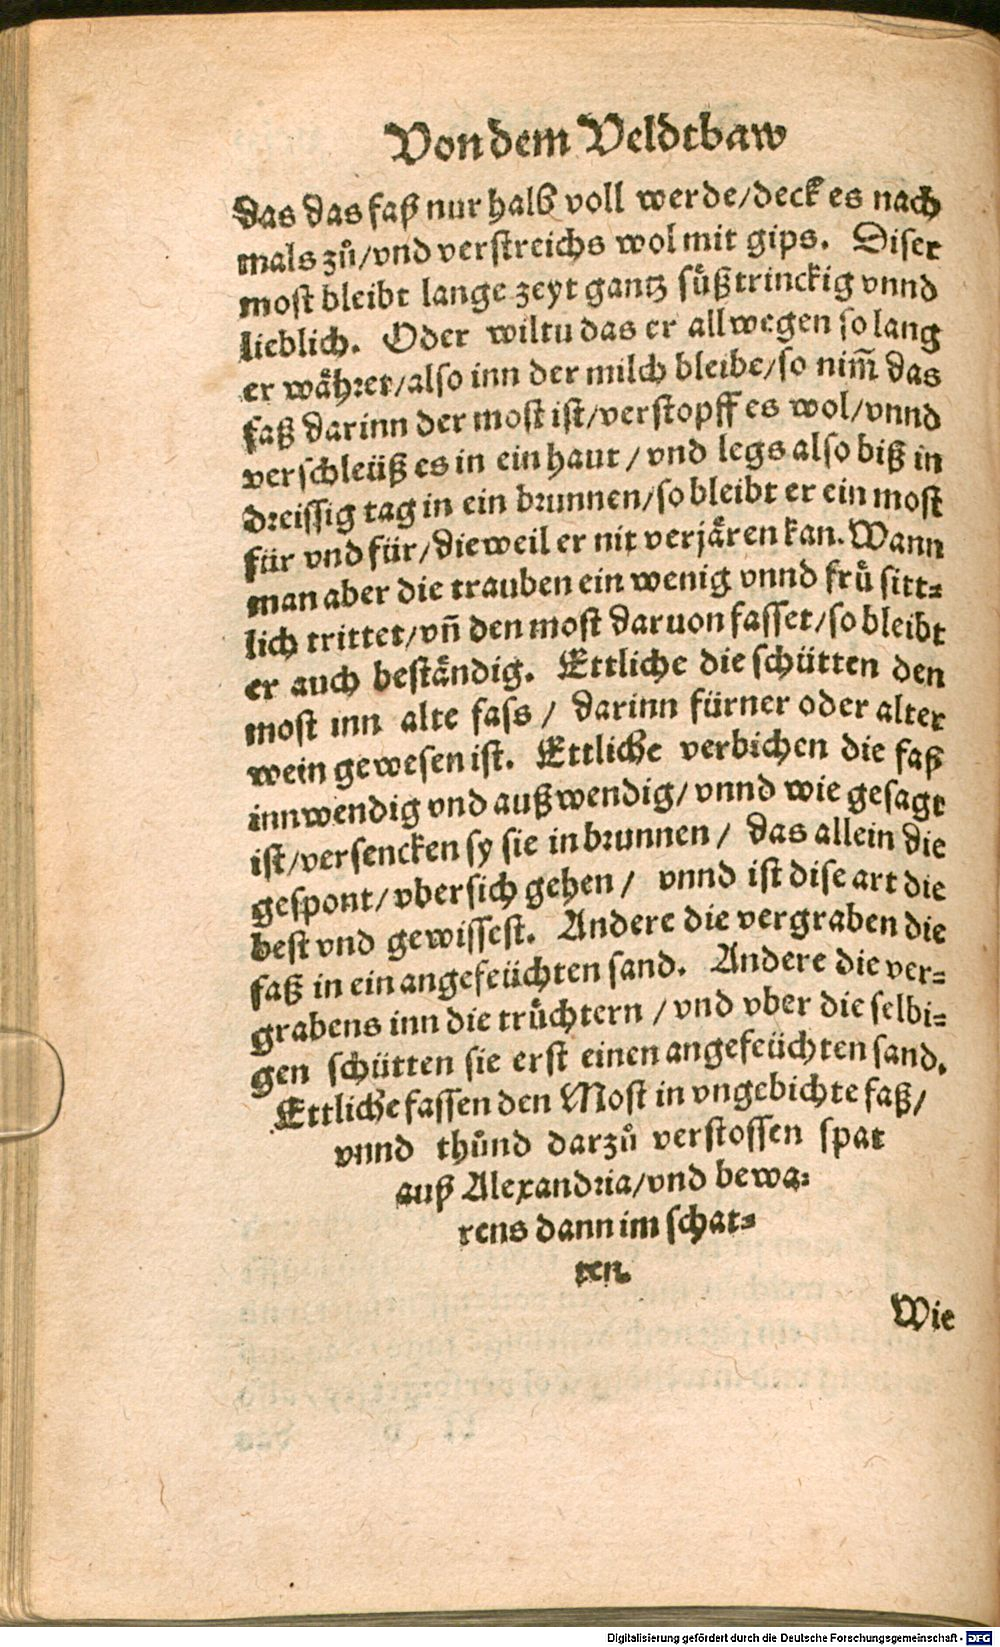 Von dem Veldtbaw
das das faß nur halb voll werde/deck es nach
mals zů/vnd verstreichs wol mit gips. Diser
most bleibt lange zeyt gantz sůß trinckig vnnd
lieblich. Oder wiltu das er allwegen so lang
er wåhret/also inn der milch bleibe/so nim̃ das
faß darinn der most ist/verstopff es wol/vnnd
verschleüß es in ein haut / vnd legs also biß in
dreissig tag in ein brunnen/so bleibt er ein most
für vnd für/dieweil er nit verjåren kan. Wann
man aber die trauben ein wenig vnnd frů sitt⸗
lich trittet/vñ den most daruon fasset/so bleibt
er auch beståndig. Ettliche die schütten den
most inn alte fass / darinn fürner oder alter
wein gewesen ist. Ettliche verbichen die faß
innwendig vnd außwendig/ vnnd wie gesagt
ist/versencken sy sie in brunnen / das allein die
gespont/ vbersich gehen / vnnd ist dise art die
best vnd gewissest. Andere die vergraben die
faß in ein angefeüchten sand. Andere die ver⸗
grabens inn die trůchtern / vnd vber die selbi⸗
gen schütten sie erst einen angefeüchten sand.
Ettliche fassen den Most in vngebichte faß/
vnnd thůnd darzů verstossen spat
auß Alexandria/vnd bewa⸗
rens dann im schat⸗
ten.
Wie
Digitalisierung gefördert durch die Deutsche Forschungsgemeinschaft - DFG